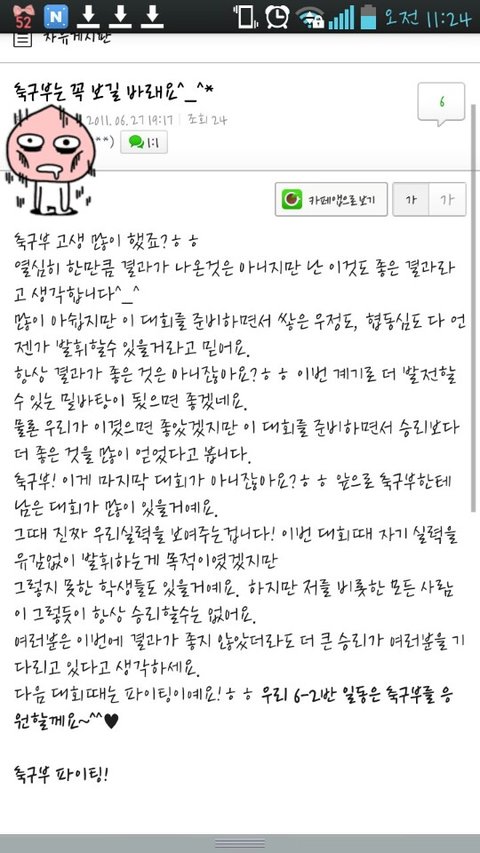 52 N 오전 11:24
자유게시판
축구부는 꼭 보길 바래요^_^*
6
2011.06.27 19:17 | 조회 24
**) 1:1
카페앱으로보기 가 가
축구부 고생 많이 했죠?ㅎㅎ
열심히 한만큼 결과가 나온것은 아니지만 난 이것도 좋은 결과라
고 생각합니다^_^
많이 아쉽지만 이 대회를 준비하면서 쌓은 우정도, 협동심도 다 언
젠가 발휘할수 있을거라고 믿어요.
항상 결과가 좋은 것은 아니잖아요?ㅎㅎ 이번 계기로 더 발전할
수 있는 밑바탕이 됬으면 좋겠네요.
물론 우리가 이겼으면 좋았겠지만 이 대회를 준비하면서 승리보다
더 좋은 것을 많이 얻었다고 봅니다.
축구부! 이게 마지막 대회가 아니잖아요?ㅎㅎ 앞으로 축구부한테
남은 대회가 많이 있을거예요.
그때 진짜 우리실력을 보여주는겁니다! 이번 대회때 자기 실력을
유감없이 발휘하는게 목적이였겠지만
그렇지 못한 학생들도 있을거예요. 하지만 저를 비롯한 모든 사람
이 그렇듯이 항상 승리할수는 없어요.
여러분은 이번에 결과가 좋지 않았더라도 더 큰 승리가 여러분을 기
다리고 있다고 생각하세요.
다음 대회때는 파이팅이예요!ㅎㅎ 우리 6-2반 일동은 축구부를 응
원할께요~^^♥
축구부 파이팅!